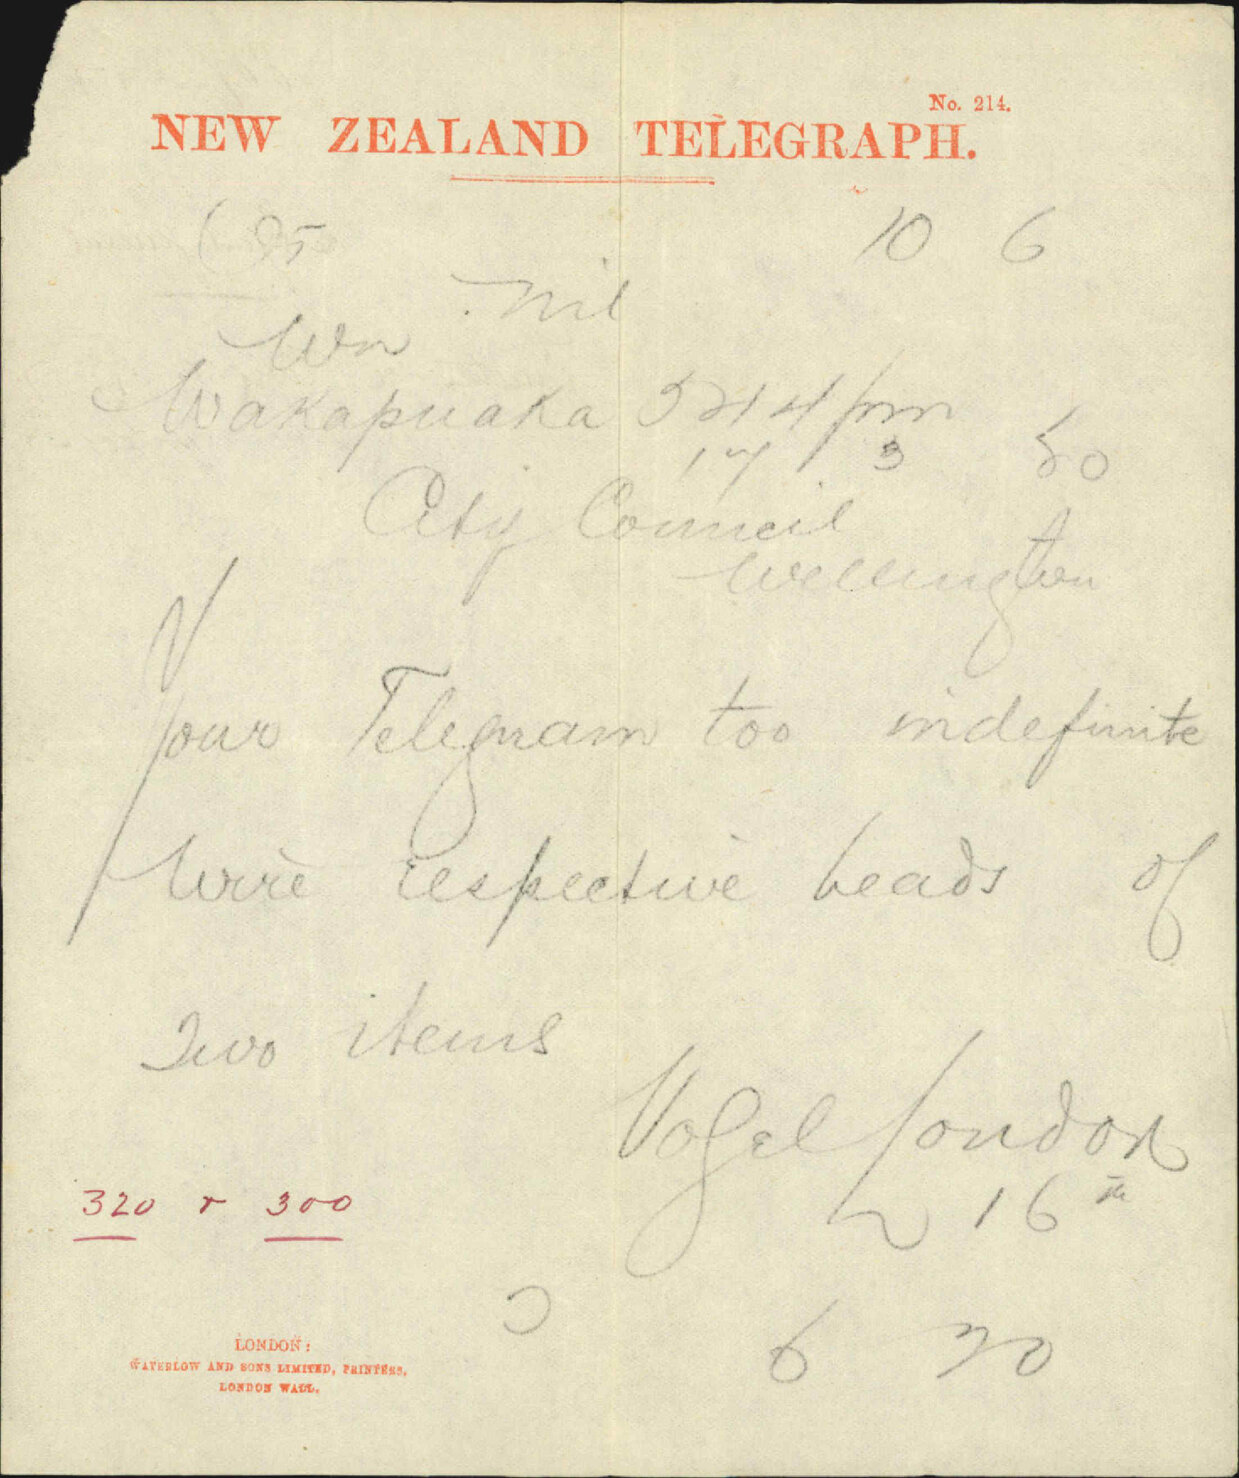 No. 214.
NEW ZEALAND TELEGRAPH.
10 6
Nil
Wn
Wakapuaka 5 24 pm
17 3 50
City Council
Wellington
Your Telegram too indefinite
Wire respective heads of
Two items
Vogel London
16th
320 & 300
6 20
LONDON:
WATERLOW AND SONS LIMITED, PRINTERS,
LONDON WALL.